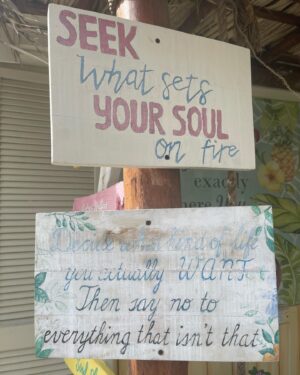 SEEK
What sets
YOUR SOUL
on fire
exactly
where
Decide what kind of life
you actually WANT
Then say no to
everything that isn't that